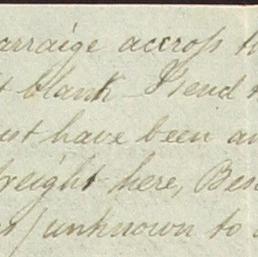 arraige accross
blank I send
ust have been an
freight here, Bes
unknown to